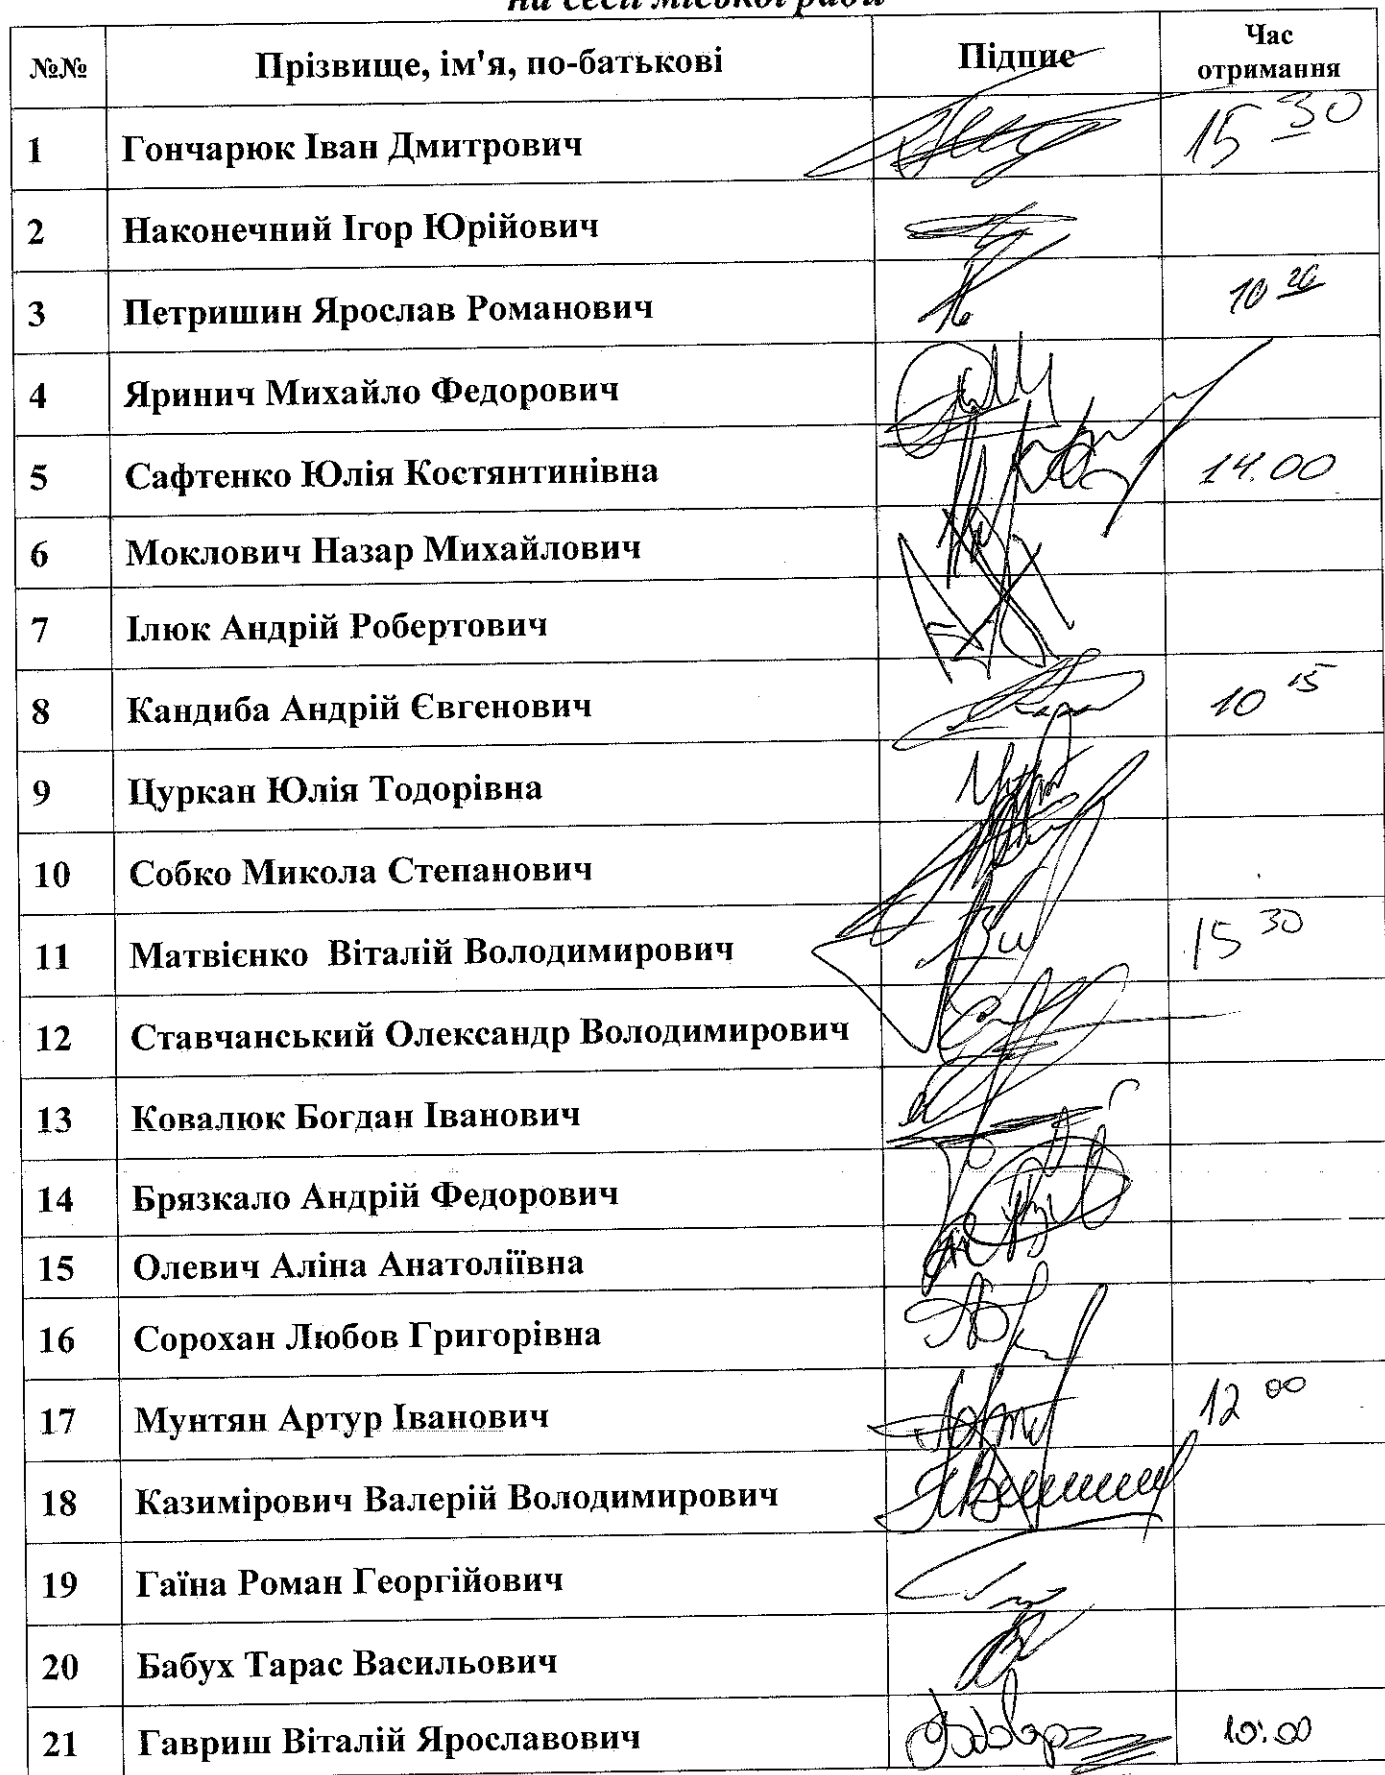 на сесії міської ради
№№ Прізвище, ім'я, по-батькові Підпис Час отримання
1 Гончарюк Іван Дмитрович 15 30
2 Наконечний Ігор Юрійович
3 Петришин Ярослав Романович 10 20
4 Яринич Михайло Федорович
5 Сафтенко Юлія Костянтинівна 14.00
6 Моклович Назар Михайлович
7 Ілюк Андрій Робертович
8 Кандиба Андрій Євгенович 10 15
9 Цуркан Юлія Тодорівна
10 Собко Микола Степанович
11 Матвієнко Віталій Володимирович 15 30
12 Ставчанський Олександр Володимирович
13 Ковалюк Богдан Іванович
14 Брязкало Андрій Федорович
15 Олевич Аліна Анатоліївна
16 Сорохан Любов Григорівна
17 Мунтян Артур Іванович 12 00
18 Казимірович Валерій Володимирович
19 Гаїна Роман Георгійович
20 Бабух Тарас Васильович
21 Гавриш Віталій Ярославович 10:00